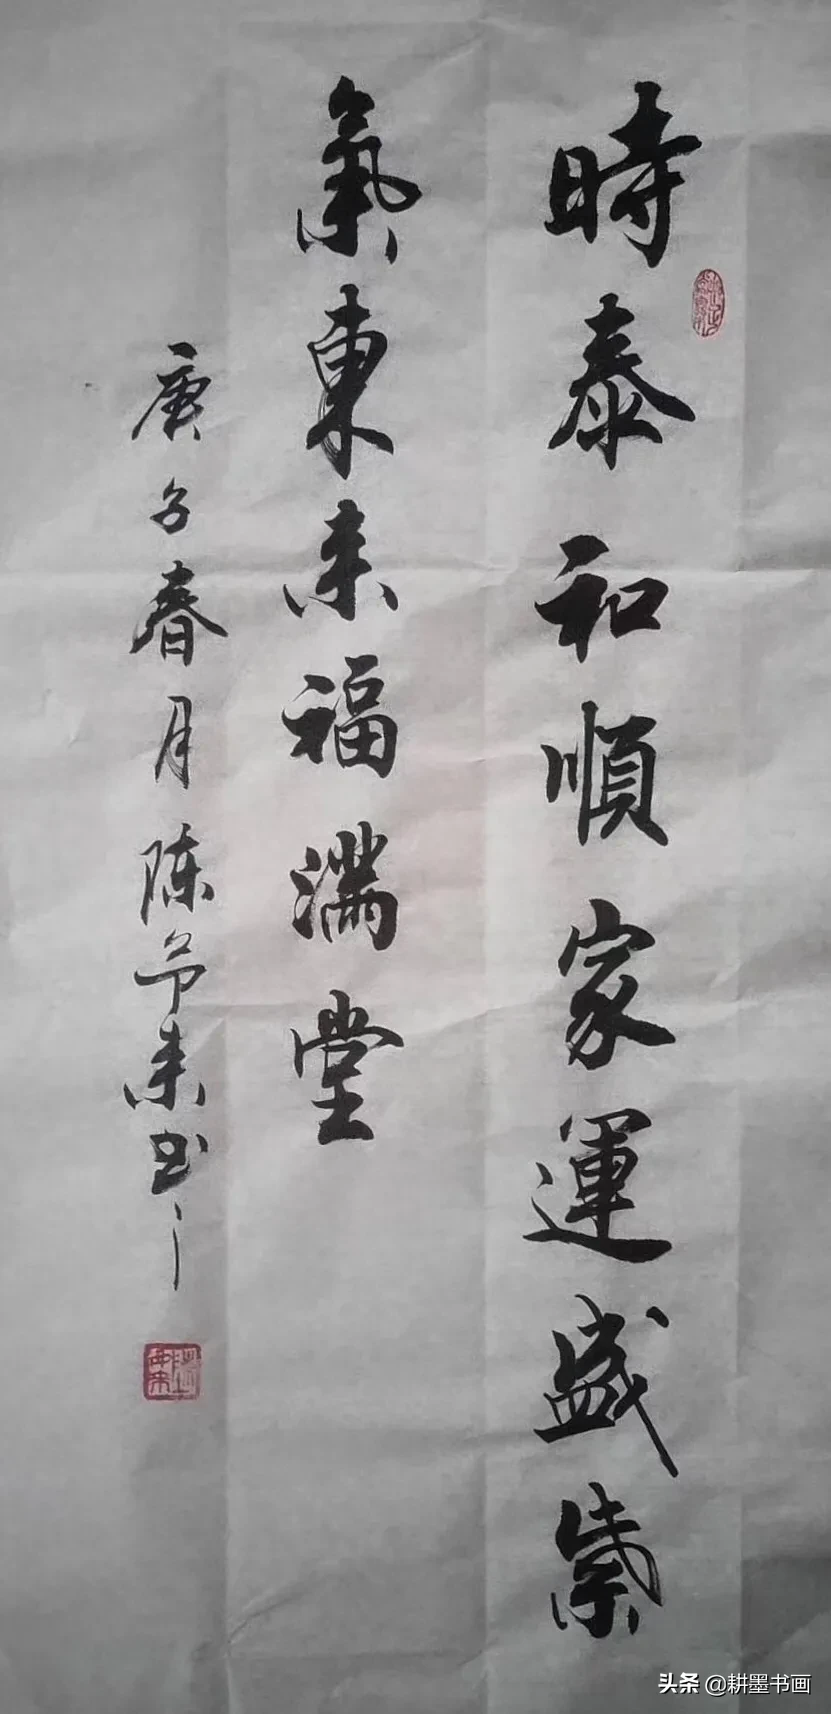 時泰和順家運盛紫
氣東来福滿堂
庚子春月陈予来书
头条 @耕墨书画